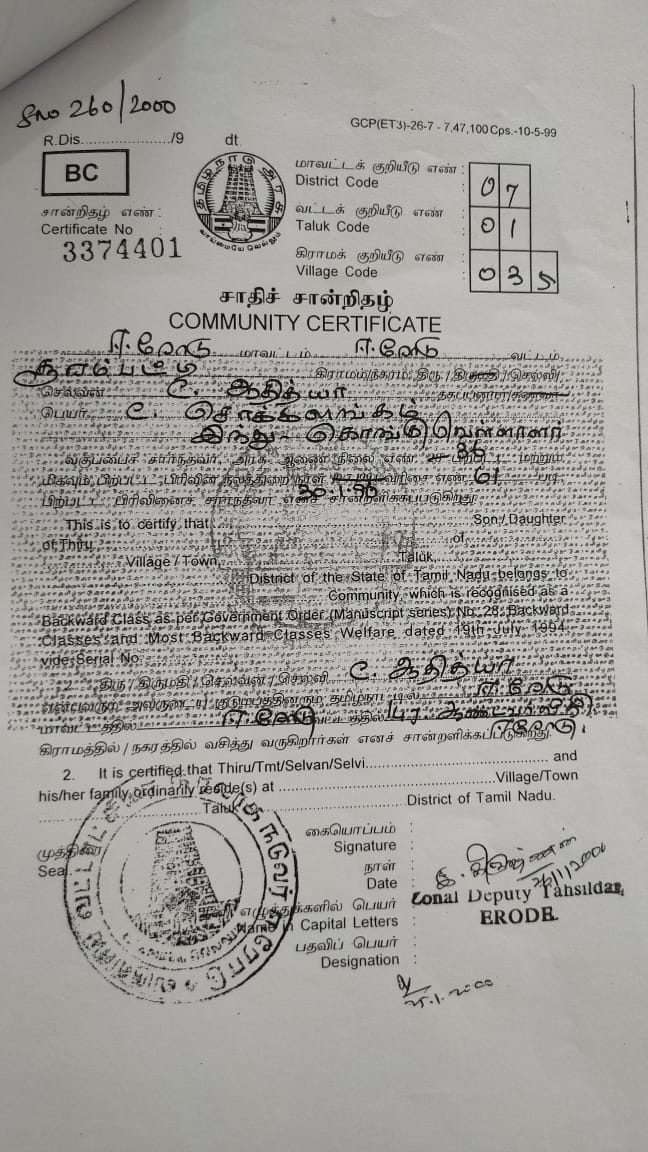 SNo 260/2000
GCP(ET3)-26-7 - 7,47,100 Cps.-10-5-99
R.Dis.....................​/9 dt
BC
மாவட்டக் குறியீடு எண் :
District Code : 07
சான்றிதழ் எண் :
வட்டக் குறியீடு எண் :
Certificate No
Taluk Code : 01
3374401
கிராமக் குறியீடு எண் :
Village Code : 035
தமிழ்நாடு அரசு
வாய்மையே வெல்லும்
சாதிச் சான்றிதழ்
COMMUNITY CERTIFICATE
ஈரோடு மாவட்டம் ஈரோடு வட்டம்
கிராமம்/நகரம் திரு/திருமதி/செல்வி/
செல்வன் C. ஆதித்யா தகப்பனார்/கணவர்
பெயர் C.
இந்து- கொங்கு வெள்ளாளர்
வகுப்பைச் சார்ந்தவர். அரசு ஆணை நிலை எண் மற்றும்
மிகவும் பிற்பட்ட பிரிவின் நலத்துறை நாள் வரிசை எண் 61 படி
பிற்பட்ட பிரிவினைச் சார்ந்தவர் எனச் சான்றளிக்கப்படுகிறது
This is to certify that Son / Daughter
of Thiru of
Village / Town, Taluk,
District of the State of Tamil Nadu belongs to
Community, which is recognised as a
Backward Class as per Government Order (Manuscript series) No. 28, Backward
Classes and Most Backward Classes Welfare dated 19th July 1994
vide Serial No.
2. திரு / திருமதி / செல்வன் / செல்வி C. ஆதித்யா
என்பவரும் அவருடைய குடும்பத்தினரும் தமிழ்நாட்டில் ஈரோடு
மாவட்டத்தில் ஈரோடு வட்டத்தில் 147
ஈரோடு.
கிராமத்தில் / நகரத்தில் வசித்து வருகிறார்கள் எனச் சான்றளிக்கப்படுகிறது.
2. It is certified that Thiru/Tmt/Selvan/Selvi............................................. and
his/her family ordinarily reside(s) at .............................................Village/Town
Taluk............................................. District of Tamil Nadu.
கையொப்பம் :
முத்திரை
Signature :
Seal
நாள் :
Date :
Zonal Deputy Tahsildar,
எழுத்துக்களில் பெயர் :
ERODE.
Name in Capital Letters :
பதவிப் பெயர் :
Designation :
25.1.2000